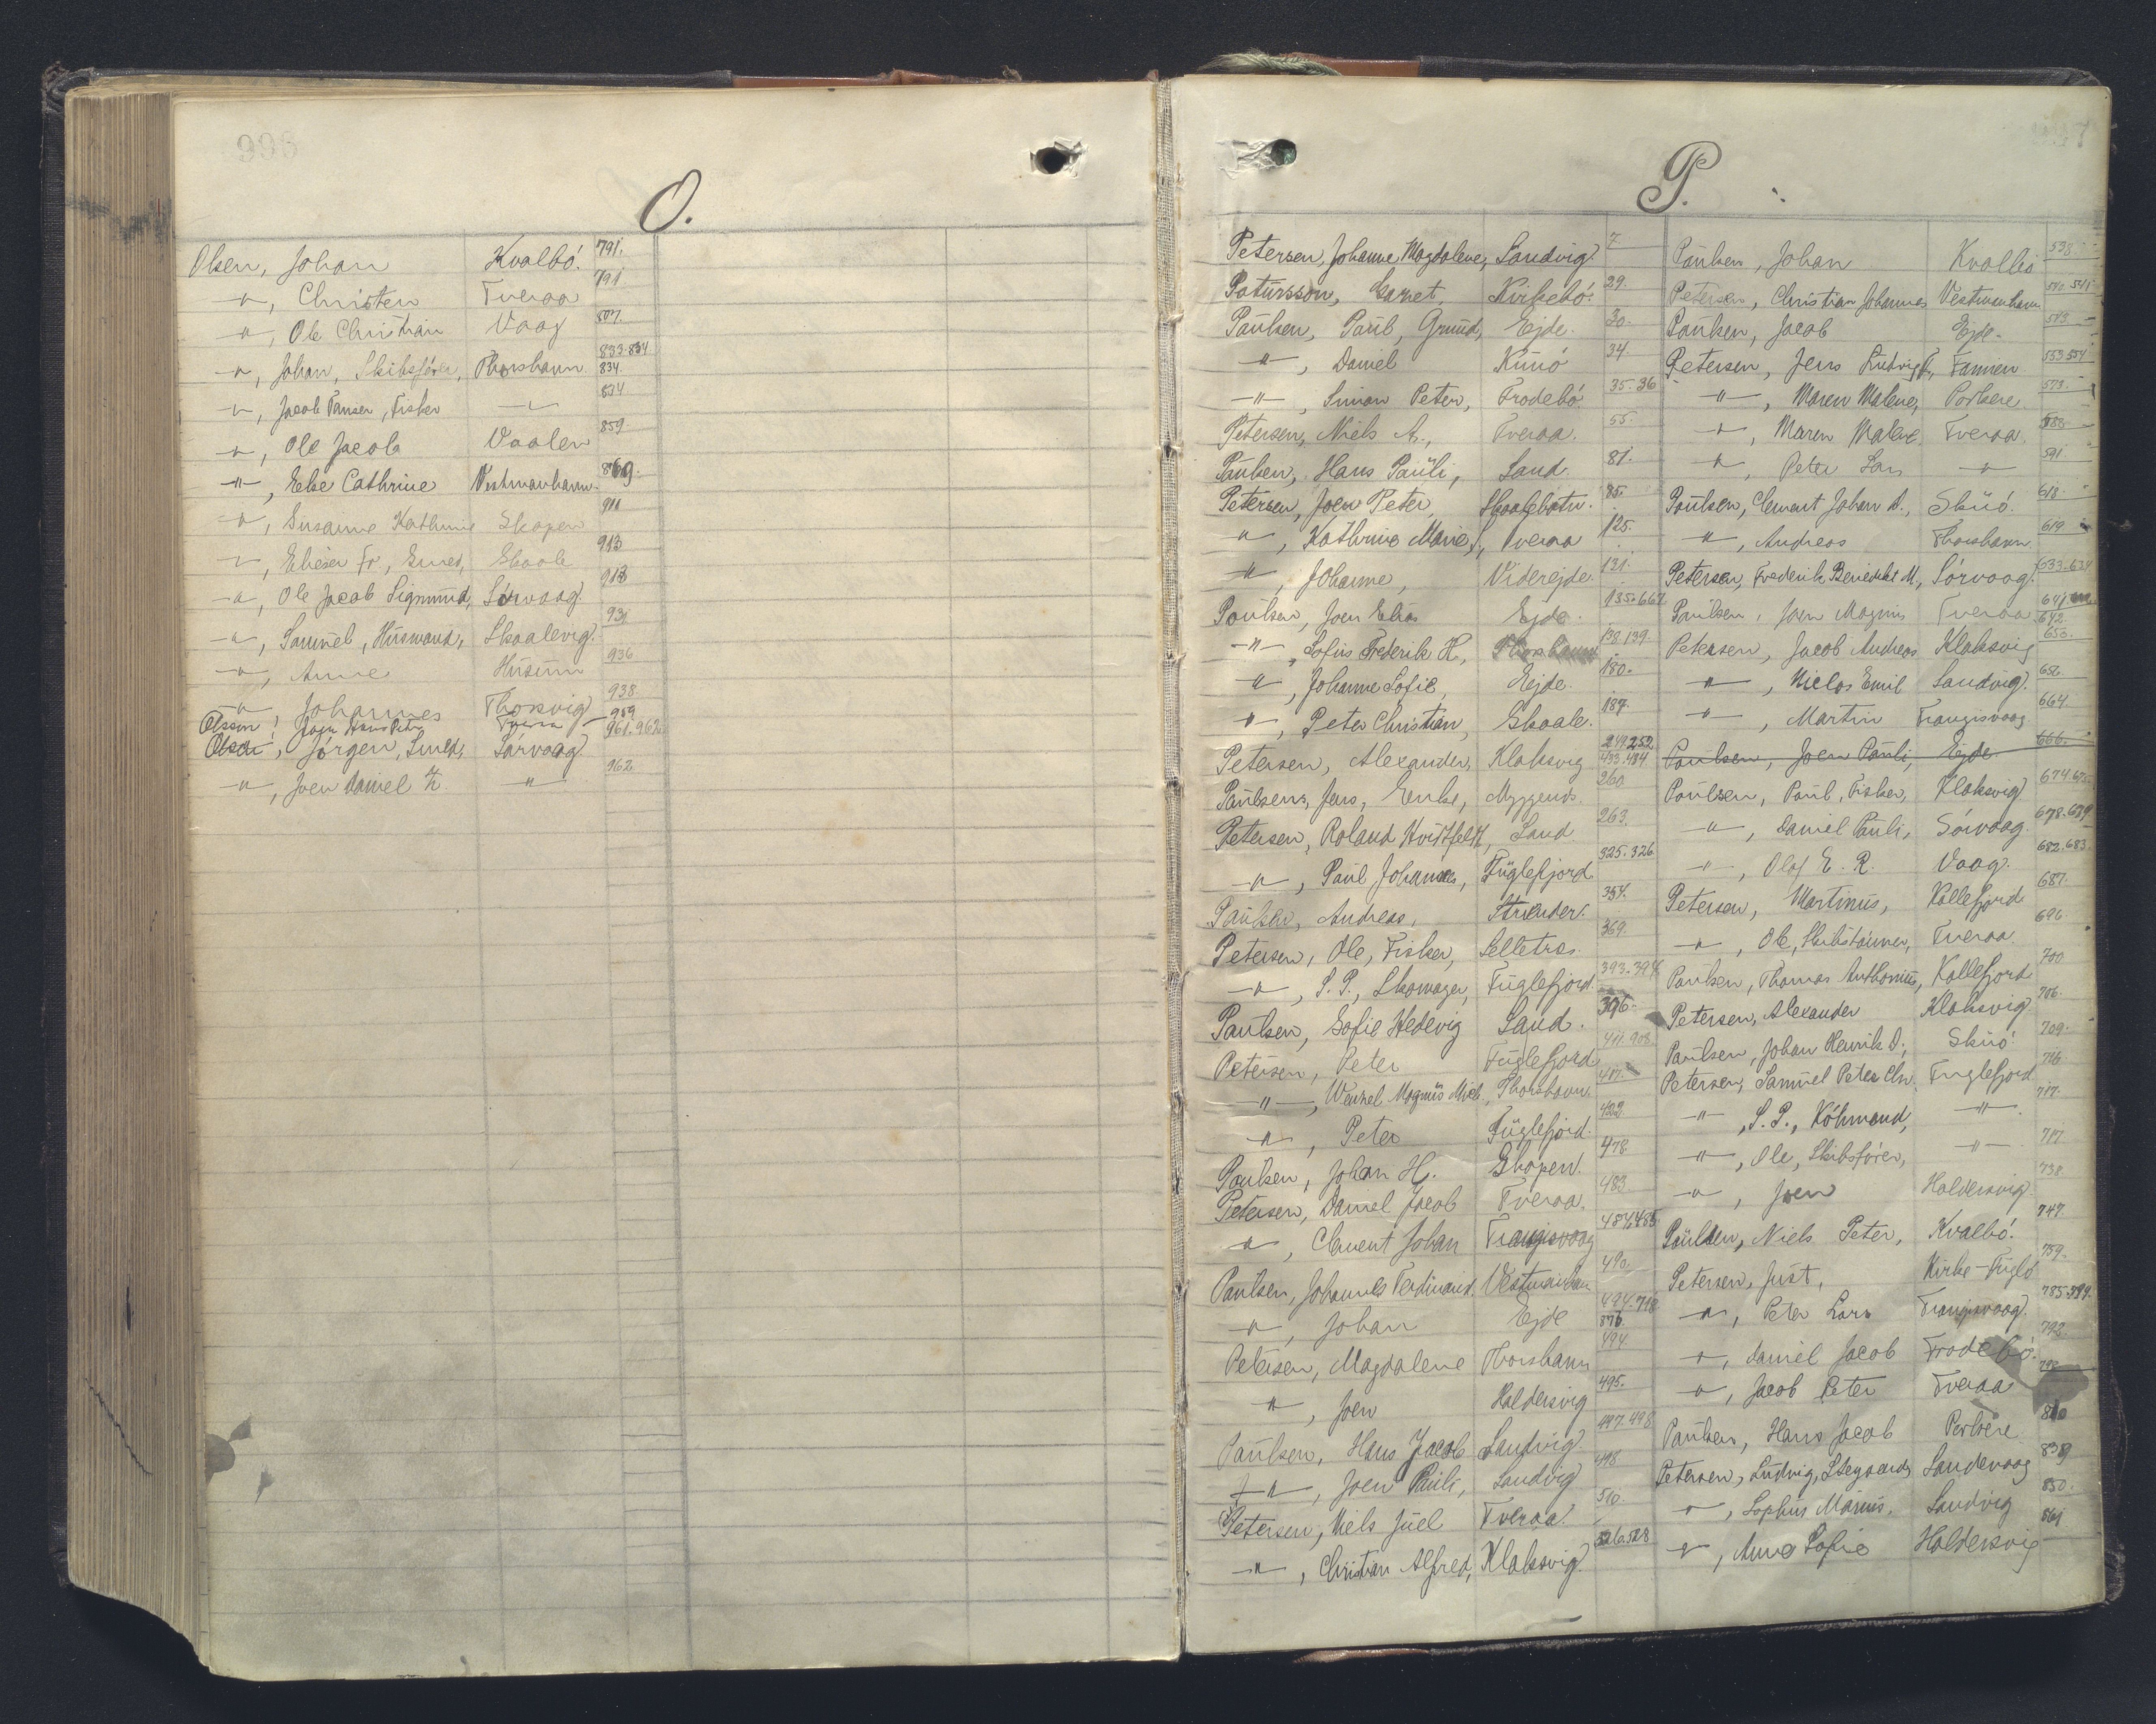 O.
Olsen, Johan Kvalbó. 791.
-"-, Christen Tveraa 791
-"-, Ole Christian Vaag 807.
-"-, Johan, Skibsförer, Thorshavn 833.834 834.
-"-, Jacob Pauser, Fisker -"- 834
-"-, Ole Jacob Vaalen 859
-"-, Else Cathrine Vestmanhavn. 869.
-"-, Susanne Kathrine Skopen 911
-"-, Elieser Fr., Smed, Skaale 913
-"-, Ole Jacob Sigmund, Sórvaag 913
-"-, Samuel, Husmand, Skaalevig. 931
-"-, Anne Husum 936
-"-, Johannes Thorsvig 938
Olsson, Joen Hans Peter Tveraa 959
Olsen, Jörgen, Smed, Sórvaag 961.962
-"-, Joen Daniel -"- 962
P.
Petersen, Johanne Magdalene, Sandvig. 7
Patursson, Gazet, Kirkebó. 29.
Paulsen, Paul, Grund, Ejde. 30.
-"-, Daniel Kunó 34.
-"-, Simon Peter, Frodebó. 35.36
Petersen, Niels A., Tveraa. 55.
Paulsen, Hans Pauli, Sand. 81.
Petersen, Joen Peter, Skaalebotn. 85.
-"-, Kathrine Marie, Tveraa 125.
-"-, Johanne, Viderejde. 131.
Poulsen, Joen Elias Ejde. 135.667
-"-, Sofus Frederik H., Thorshavn 138.139.
-"-, Johanne Sofie, Ejde. 180.
-"-, Peter Christian, Skaale. 187.
Petersen, Alexander, Klaksvig 249.252 433.434
Paulsens, Jens, Enke, Myggends. 260
Petersen, Roland Kvistfeldt, Sand 263.
-"-, Paul Johannes, Fuglefjord 325.326
Paulsen, Andreas, Strender. 354.
Petersen, Ole, Fisker, Selletræ. 369.
-"-, S. P., Skomager, Fuglefjord. 393.394.
Paulsen, Sofie Hedevig Sand. 396.
Petersen, Peter Fuglefjord. 411.908
-"-, Wenzel Magnus Mich., Thorshavn. 417.
-"-, Peter Fuglefjord. 422
Poulsen, Johan H. Skopen. 478.
Petersen, Daniel Jacob Tveraa. 483.
-"-, Clement Johan Trangisvaag 484.485
Paulsen, Johannes Ferdinand. Vestmanhavn 490.
-"-, Johan Ejde 494.718 876.
Petersen, Magdalene Thorshavn 494.
-"-, Joen Haldersvig 495.
Paulsen, Hans Jacob Sandvig. 497.498
-"-, Joen Pauli, Sandvig 498
Petersen, Niels Juel Tveraa. 510.
-"-, Christian Alfred, Klaksvig. 526.528
Paulsen, Johan Kvalbó 538
Petersen, Christian Johannes Vestmanhavn 540.541
Paulsen, Jacob Ejde. 543
Petersen, Jens Ludvig F., Famien 553.554
-"-, Maren Malene, Porkere. 578.
-"-, Maren Malene, Tveraa. 588
-"-, Peter Lars -"- 591
Poulsen, Clement Johan D., Skuó. 618.
-"-, Andreas Thorshavn 619
Petersen, Frederik Benedikt M., Sórvaag. 633.634
Paulsen, Joen Magnus Tveraa 641 642.
Petersen, Jacob Andreas Klaksvig 650.
-"-, Niclas Emil Sandvig. 652.
-"-, Martin Trangisvaag 664.
Paulsen, Joen Pauli, Ejde. 666.
Poulsen, Paul, Fisker, Klaksvig. 674.675
-"-, Daniel Pauli, Sórvaag. 678.679
-"-, Olaf E. R. Vaag. 682.683.
Petersen, Martinus, Kollefjord 687.
-"-, Ole, Skibstömrer, Tveraa. 696
Paulsen, Thomas Anthonius, Kollefjord 700
Petersen, Alexander Klaksvig. 706.
Paulsen, Johan Henrik D., Skuó 709.
Petersen, Samuel Peter Chr. Fuglefjord 716.
-"-, S. P., Köbmand, -"- 717.
-"-, Ole, Skibsförer, -"- 717
-"-, Joen Haldersvig. 738
Paulsen, Niels Peter, Kvalbó. 747.
Petersen, Just, Kirke-Fugló 759.
-"-, Peter Lars Trangisvaag. 785.
-"-, Daniel Jacob Frodebó. 792.
-"-, Jacob Peter Tveraa 792
Paulsen, Hans Jacob Porkere 810
Petersen, Ludvig, Skrædder Sandevaag 839
-"-, Sophus Marius. Sandvig 850.
-"-, Anna Sofie Haldersvig 861